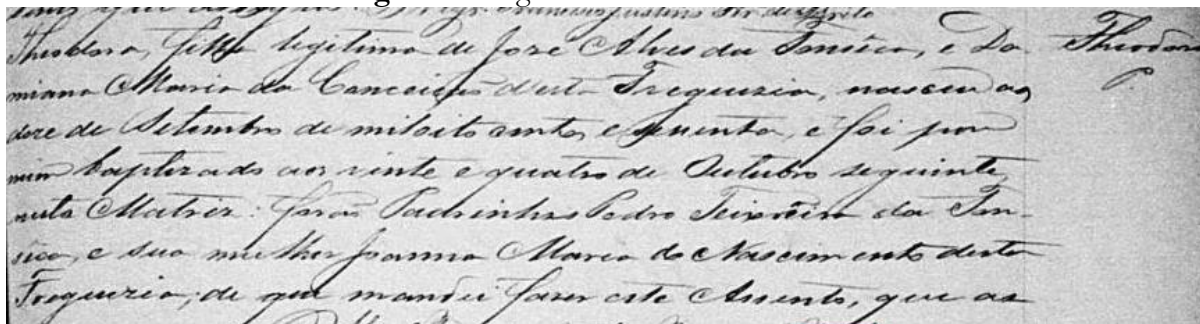 Theodora, filha legitima de José Alves da Fonsêca, e Da- Theodora
miana Maria da Conceição desta Freguezia, nasceu aos
doze de Setembro de mil oito centos, e secenta, e foi por
mim baptizada aos vinte e quatro de Outubro seguinte,
nesta Matriz: forão Padrinhos Pedro Teixeira da Fon-
sêca, e sua mulher Joanna Maria do Nascimento desta
Freguezia; de que mandei fazer este Assento, que as-